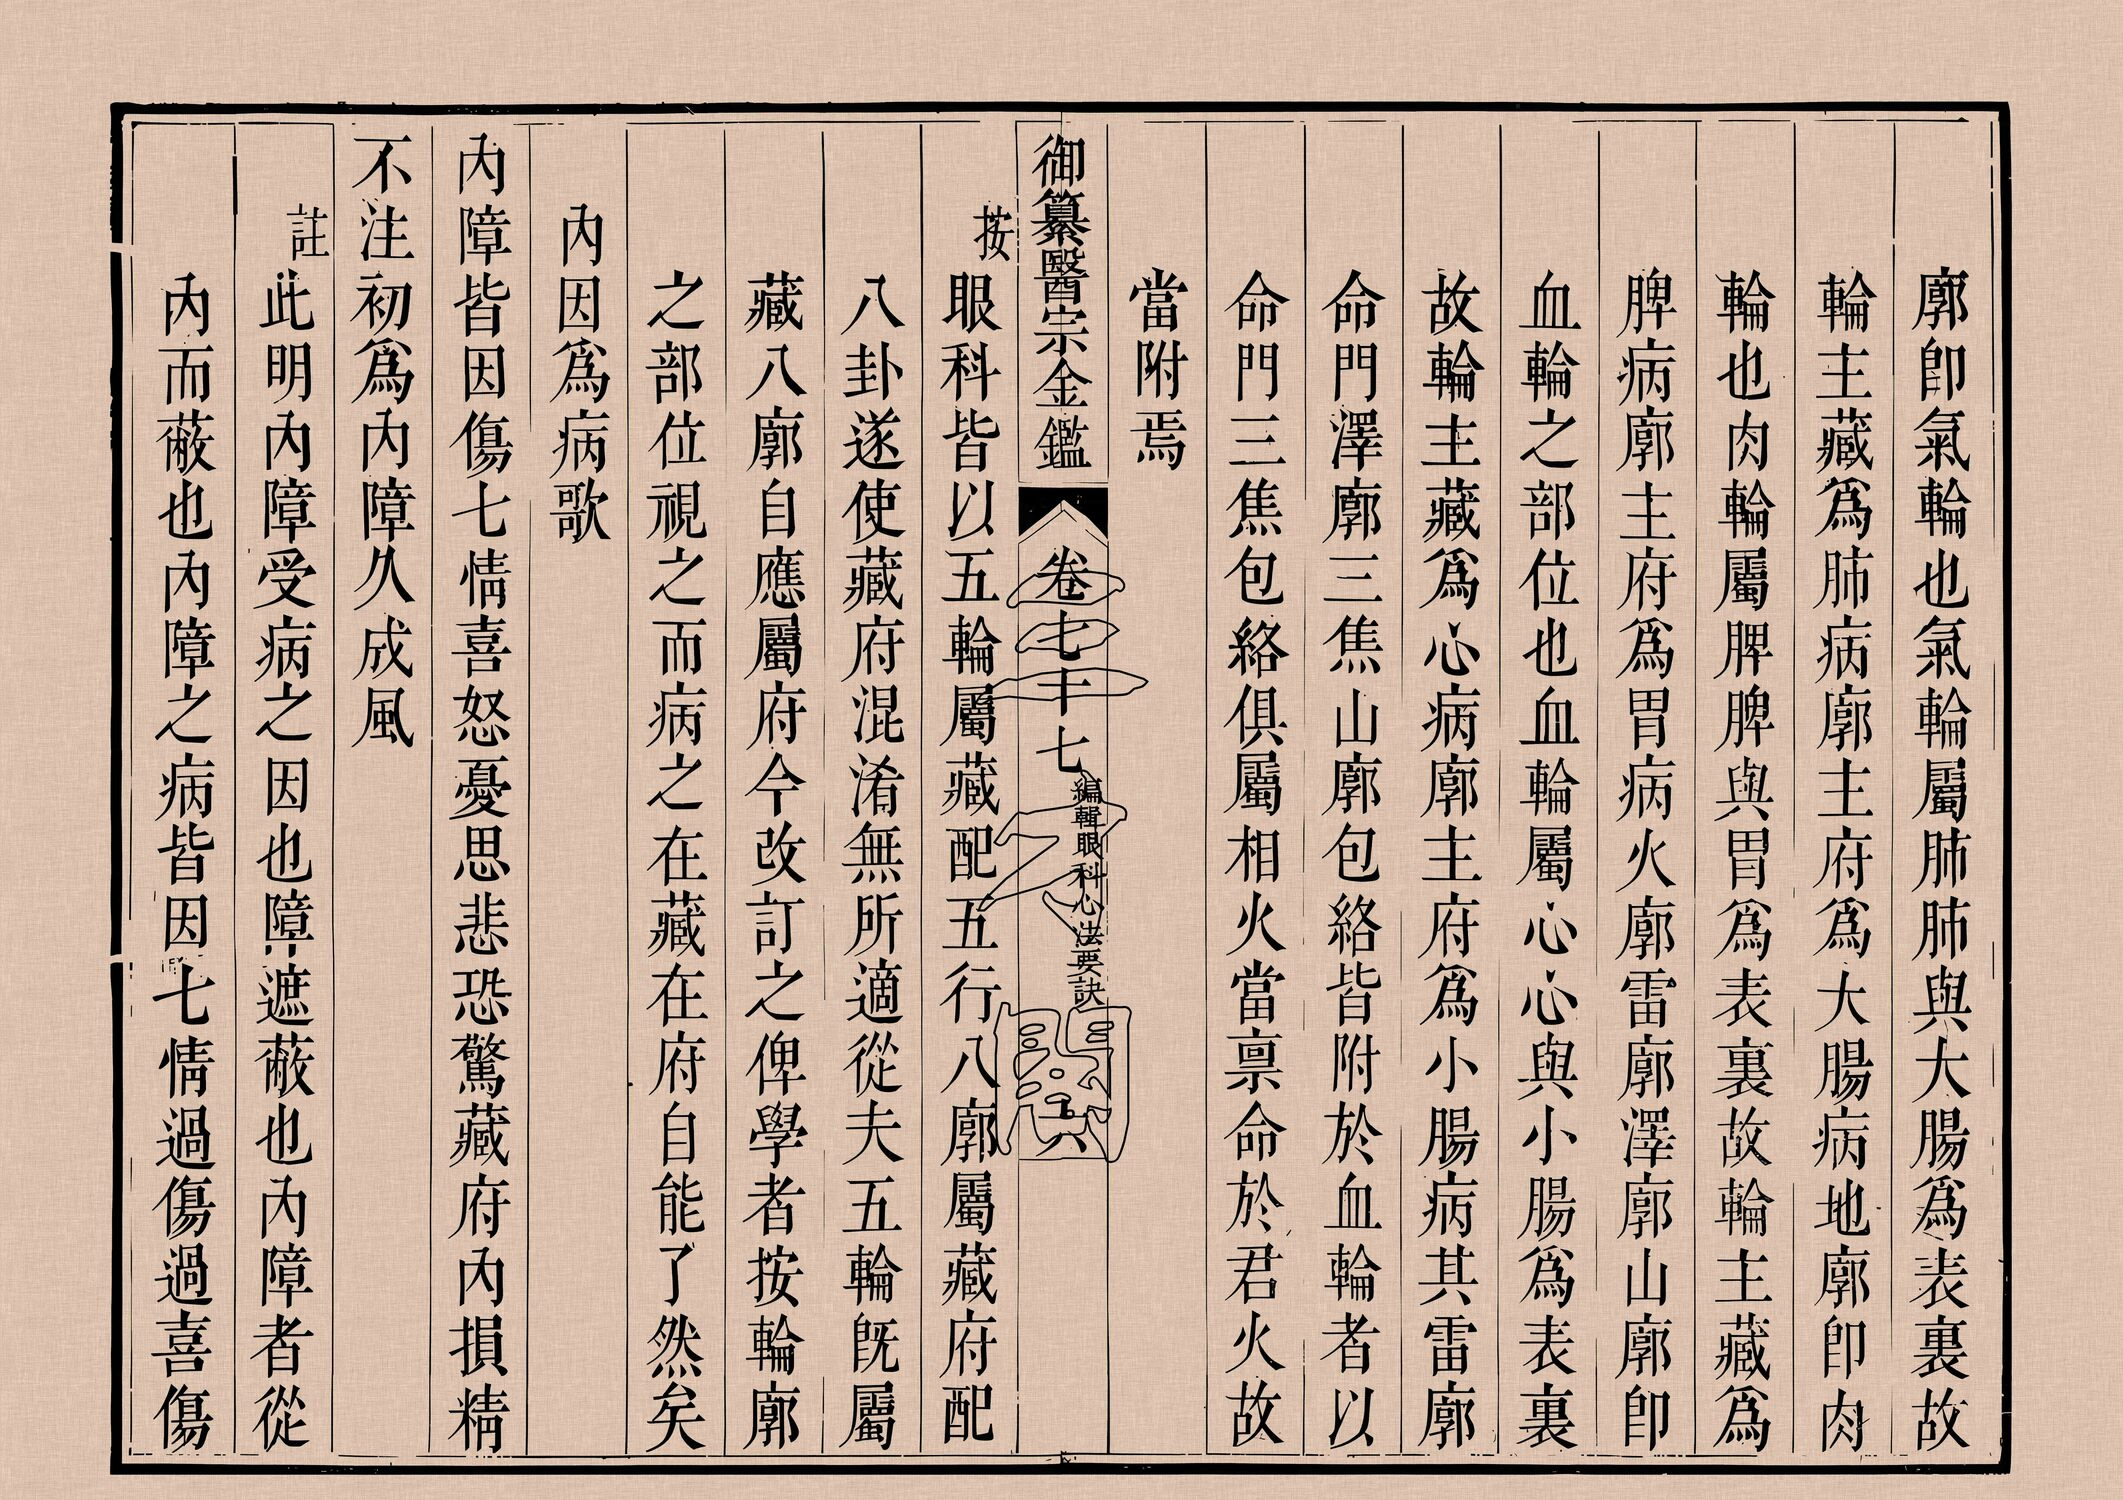 廓卽氣輪也氣輪屬肺肺與大腸爲表裏故
輪主藏爲肺病廓主府爲大腸病地廓卽肉
輪也肉輪屬脾脾與胃爲表裏故輪主藏爲
脾病廓主府爲胃病火廓雷廓澤廓山廓卽
血輪之部位也血輪屬心心與小腸爲表裏
故輪主藏爲心病廓主府爲小腸病其雷廓
命門澤廓三焦山廓包絡皆附於血輪者以
命門三焦包絡俱屬相火當禀命於君火故
當附焉
御纂醫宗金鑑
卷七十七
編輯眼科心法要訣
六
按
眼科皆以五輪屬藏配五行八廓屬藏府配
八卦遂使藏府混淆無所適從夫五輪旣屬
藏八廓自應屬府今改訂之俾學者按輪廓
之部位視之而病之在藏在府自能了然矣
內因爲病歌
內障皆因傷七情喜怒憂思悲恐驚藏府內損精
不注初爲內障久成風
註
此明內障受病之因也障遮蔽也內障者從
內而蔽也內障之病皆因七情過傷過喜傷